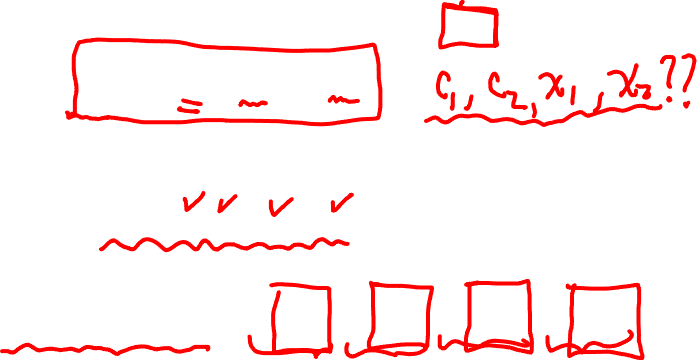 c₁, c₂, x₁, x₂??